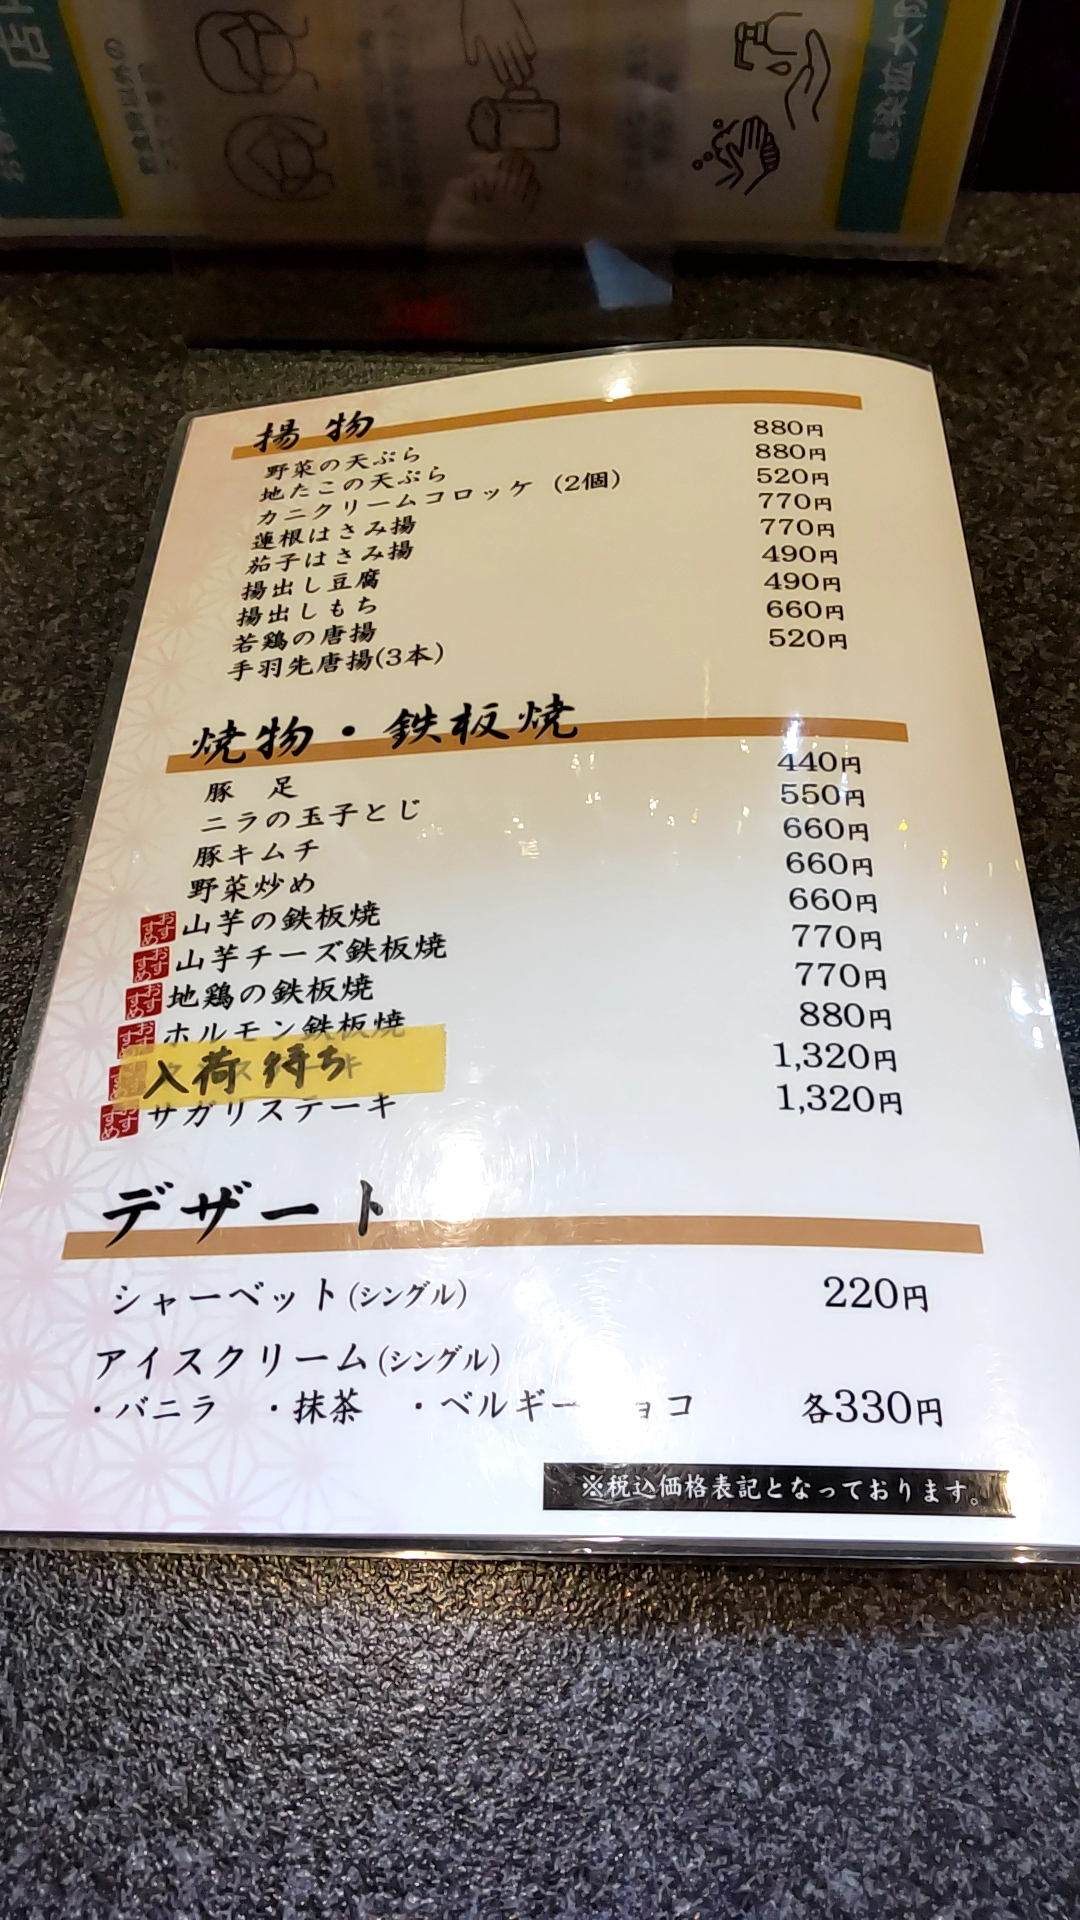 感染拡大
揚物
野菜の天ぷら 880円
地たこの天ぷら 880円
カニクリームコロッケ(2個) 520円
蓮根はさみ揚 770円
茄子はさみ揚 770円
揚出し豆腐 490円
揚出しもち 490円
若鶏の唐揚 660円
手羽先唐揚(3本) 520円
焼物・鉄板焼
豚 足 440円
ニラの玉子とじ 550円
豚キムチ 660円
野菜炒め 660円
おすすめ 山芋の鉄板焼 660円
おすすめ 山芋チーズ鉄板焼 770円
おすすめ 地鶏の鉄板焼 770円
おすすめ ホルモン鉄板焼 880円
入荷待ち 1,320円
おすすめ サガリステーキ 1,320円
デザート
シャーベット(シングル) 220円
アイスクリーム(シングル)
・バニラ ・抹茶 ・ベルギー ョコ 各330円
※税込価格表記となっております。